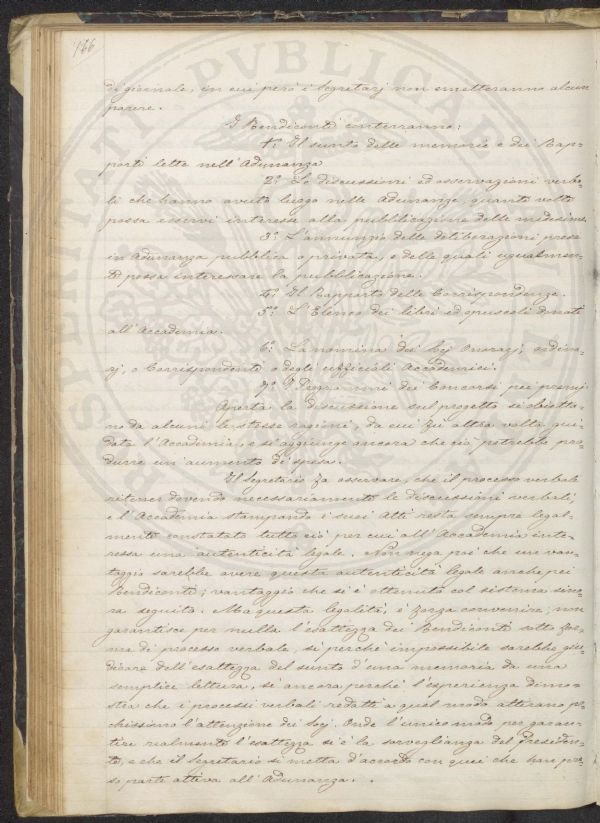 166
di giornale, in cui però i Segretarj non emetteranno alcun
parere.
I Rendiconti conterranno:
1.º Il sunto delle memorie e dei Rap-
porti lette nell'Adunanza
2.º Le discussioni ed osservazioni verba-
li che hanno avuto luogo nelle Adunanze, quante volte
possa esservi interesse alla pubblicazione delle medesime.
3.º L'annunzio delle deliberazioni prese
in Adunanza pubblica o privata, e delle quali ugualmen-
te possa interessare la pubblicazione.
4.º Il Rapporto delle Corrispondenze.
5.º L'Elenco dei libri ed opuscoli donati
all'Accademia.
6.º La nomina dei Socj Onorarj, ordina-
rj, o Corrispondenti o degli ufficiali Accademici.
7.º I Programmi dei Concorsi pei premj
Aperta la discussione sul progetto si obietta-
no da alcuni le stesse ragioni, da cui fu altra volta gui-
data l'Accademia, e si aggiunge ancora che ciò potrebbe pro-
durre un aumento di spesa.
Il Segretario fa osservare, che il processo verbale
ritener dovendo necessariamente le discussioni verbali,
e l'Accademia stampando i suoi Atti resta sempre legal-
mente constatato tutto ciò per cui all'Accademia inte-
ressa una autenticità legale. Non nega poi che un van-
taggio sarebbe avere questa autenticità legale anche pei
Rendiconti; vantaggio che si è ottenuto col sistema sino-
ra seguito. Ma questa legalità, è forza convenire, non
garantisce per nulla l'esattezza dei Rendiconti sotto for-
ma di processo verbale, sì perchè impossibile sarebbe giu-
dicare dell'esattezza del sunto d'una memoria da una
semplice lettura, sì ancora perchè l'esperienza dimo-
stra che i processi verbali redatti a quel modo attirano po-
chissimo l'attenzione dei Socj. Onde l'unico modo per garan-
tire realmente l'esattezza si è la sorveglianza del Presiden-
te, e che il Segretario si metta d'accordo con quei che han pre-
so parte attiva all'Adunanza.
PROSPERITATI PUBLICAE